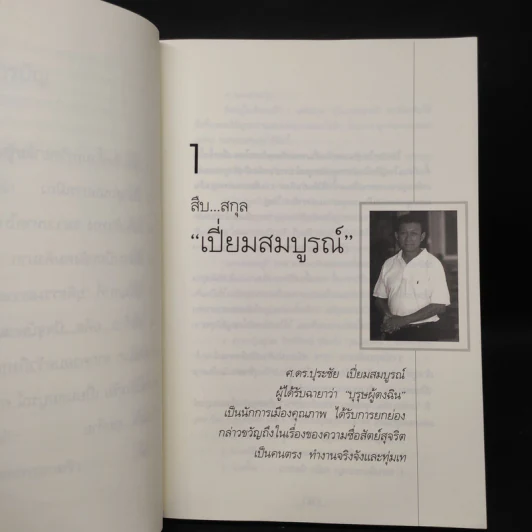 1
สืบ...สกุล
“เปี่ยมสมบูรณ์”
ศ.ดร.ปุระชัย เปี่ยมสมบูรณ์
ผู้ได้รับฉายาว่า “บุรุษผู้ตงฉิน”
เป็นนักการเมืองคุณภาพ ได้รับการยกย่อง
กล่าวขวัญถึงในเรื่องของความซื่อสัตย์สุจริต
เป็นคนตรง ทำงานจริงจังและทุ่มเท